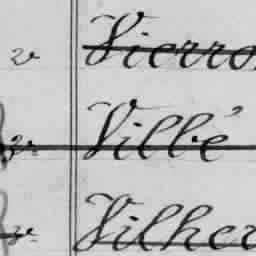 v Vierro
v Villé
v Vilher